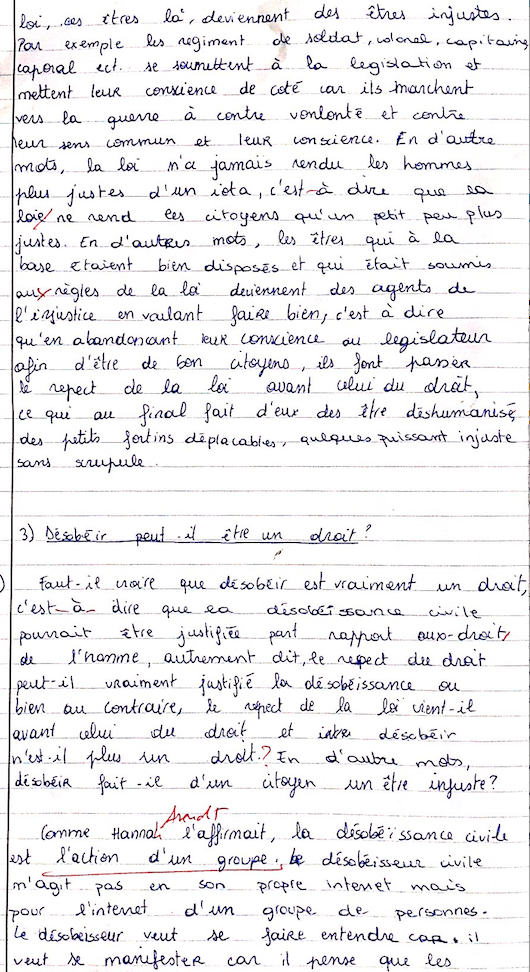 loi, ces êtres là, deviennent des êtres injustes.
Par exemple les regiment de soldat, colonel, capitaine,
caporal ect. se soumettent à la legislation et
mettent leur conscience de coté car ils marchent
vers la guerre à contre vonlonté et contre
leur sens commun et leur conscience. En d'autre
mots, la loi n'a jamais rendu les hommes
plus justes d'un iota, c'est-à dire que la
loie ne rend les citoyens qu'un petit peu plus
justes. En d'autres mots, les êtres qui à la
base etaient bien disposés et qui était soumis
aux règles de la loi deviennent des agents de
l'injustice en voulant faire bien, c'est à dire
qu'en abandonnant leur conscience au legislateur
afin d'être de bon citoyens, ils font passer
le repect de la loi avant celui du droit,
ce qui au final fait d'eux des être deshumanisé,
des petits fortins déplacables, quelques puissant injuste
sans scrupule.
3) Désobéir peut-il être un droit?
Faut-il croire que désobéir est vraiment un droit,
c'est-à-dire que la désobéissance civile
pourrait être justifiée part rapport aux-droits
de l'homme, autrement dit, le repect du droit
peut-il vraiment justifié la désobéissance ou
bien au contraire, le repect de la loi vient-il
avant celui du droit et désobéir
n'est-il plus un droit? En d'autre mots,
désobéir fait-il d'un citoyen un être injuste?
Arendt
Comme Hannah l'affirmait, la désobéissance civile
est l'action d'un groupe. Le désobeisseur civile
n'agit pas en son propre interet mais
pour l'interet d'un groupe de personnes.
Le désobeisseur veut se faire entendre car il
veut se manifester car il pense que les